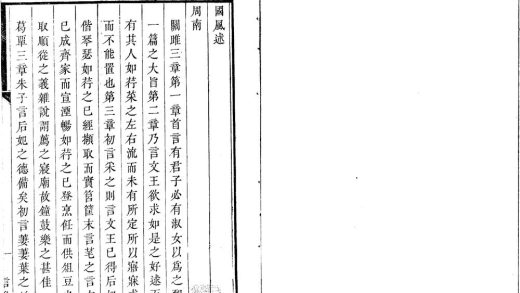 國風述
周南
關雎三章第一章首言有君子必有淑女以爲之
一篇之大旨第二章乃言文王欲求如是之好逑
有其人如荇菜之左右流而未有所定所以寤寐
而不能置也第三章初言采之則言文王已得后
偕琴瑟如荇之已經擷取而實筥筐末言芼之言
已成齊家而宣湮暢如荇之已登烹飪而供俎豆
取順從之義雜說謂薦之寢廟故鐘鼓樂之甚佳
葛覃三章朱子言后妃之德備矣初言萋萋葉之
一